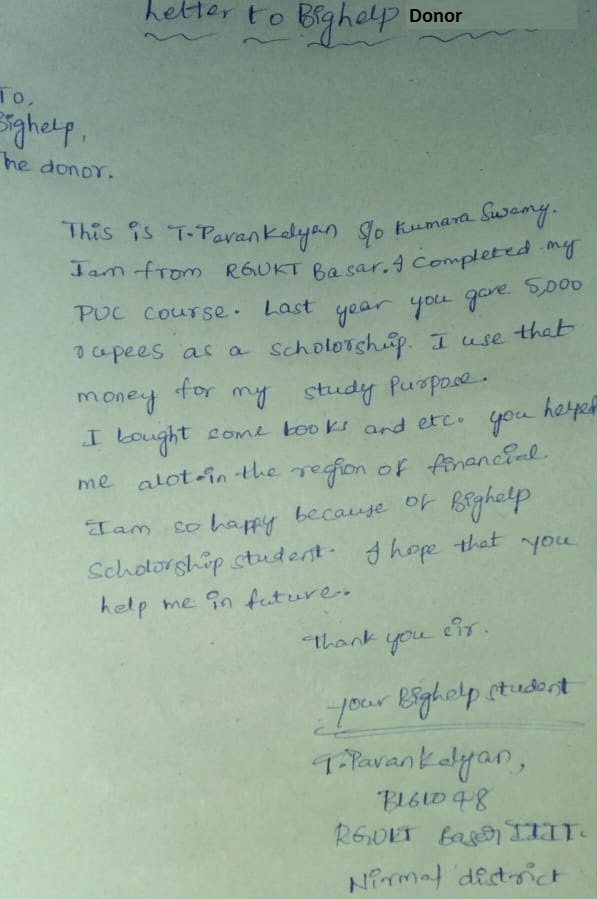 Letter to Bighelp Donor
To,
Bighelp,
The donor.
This is T. Pavankalyan S/o Kumara Swamy.
I am from RGUKT Basar. I completed my
PUC course. Last year you gave 5,000
rupees as a scholorship. I use that
money for my study purpose.
I bought some books and etc. you helped
me alot in the region of financial.
I am so happy because of Bighelp
Scholorship student. I hope that you
help me in future.
Thank you sir.
your Bighelp student
T. Pavankalyan,
B161048
RGUKT Basar IIIT.
Nirmal district